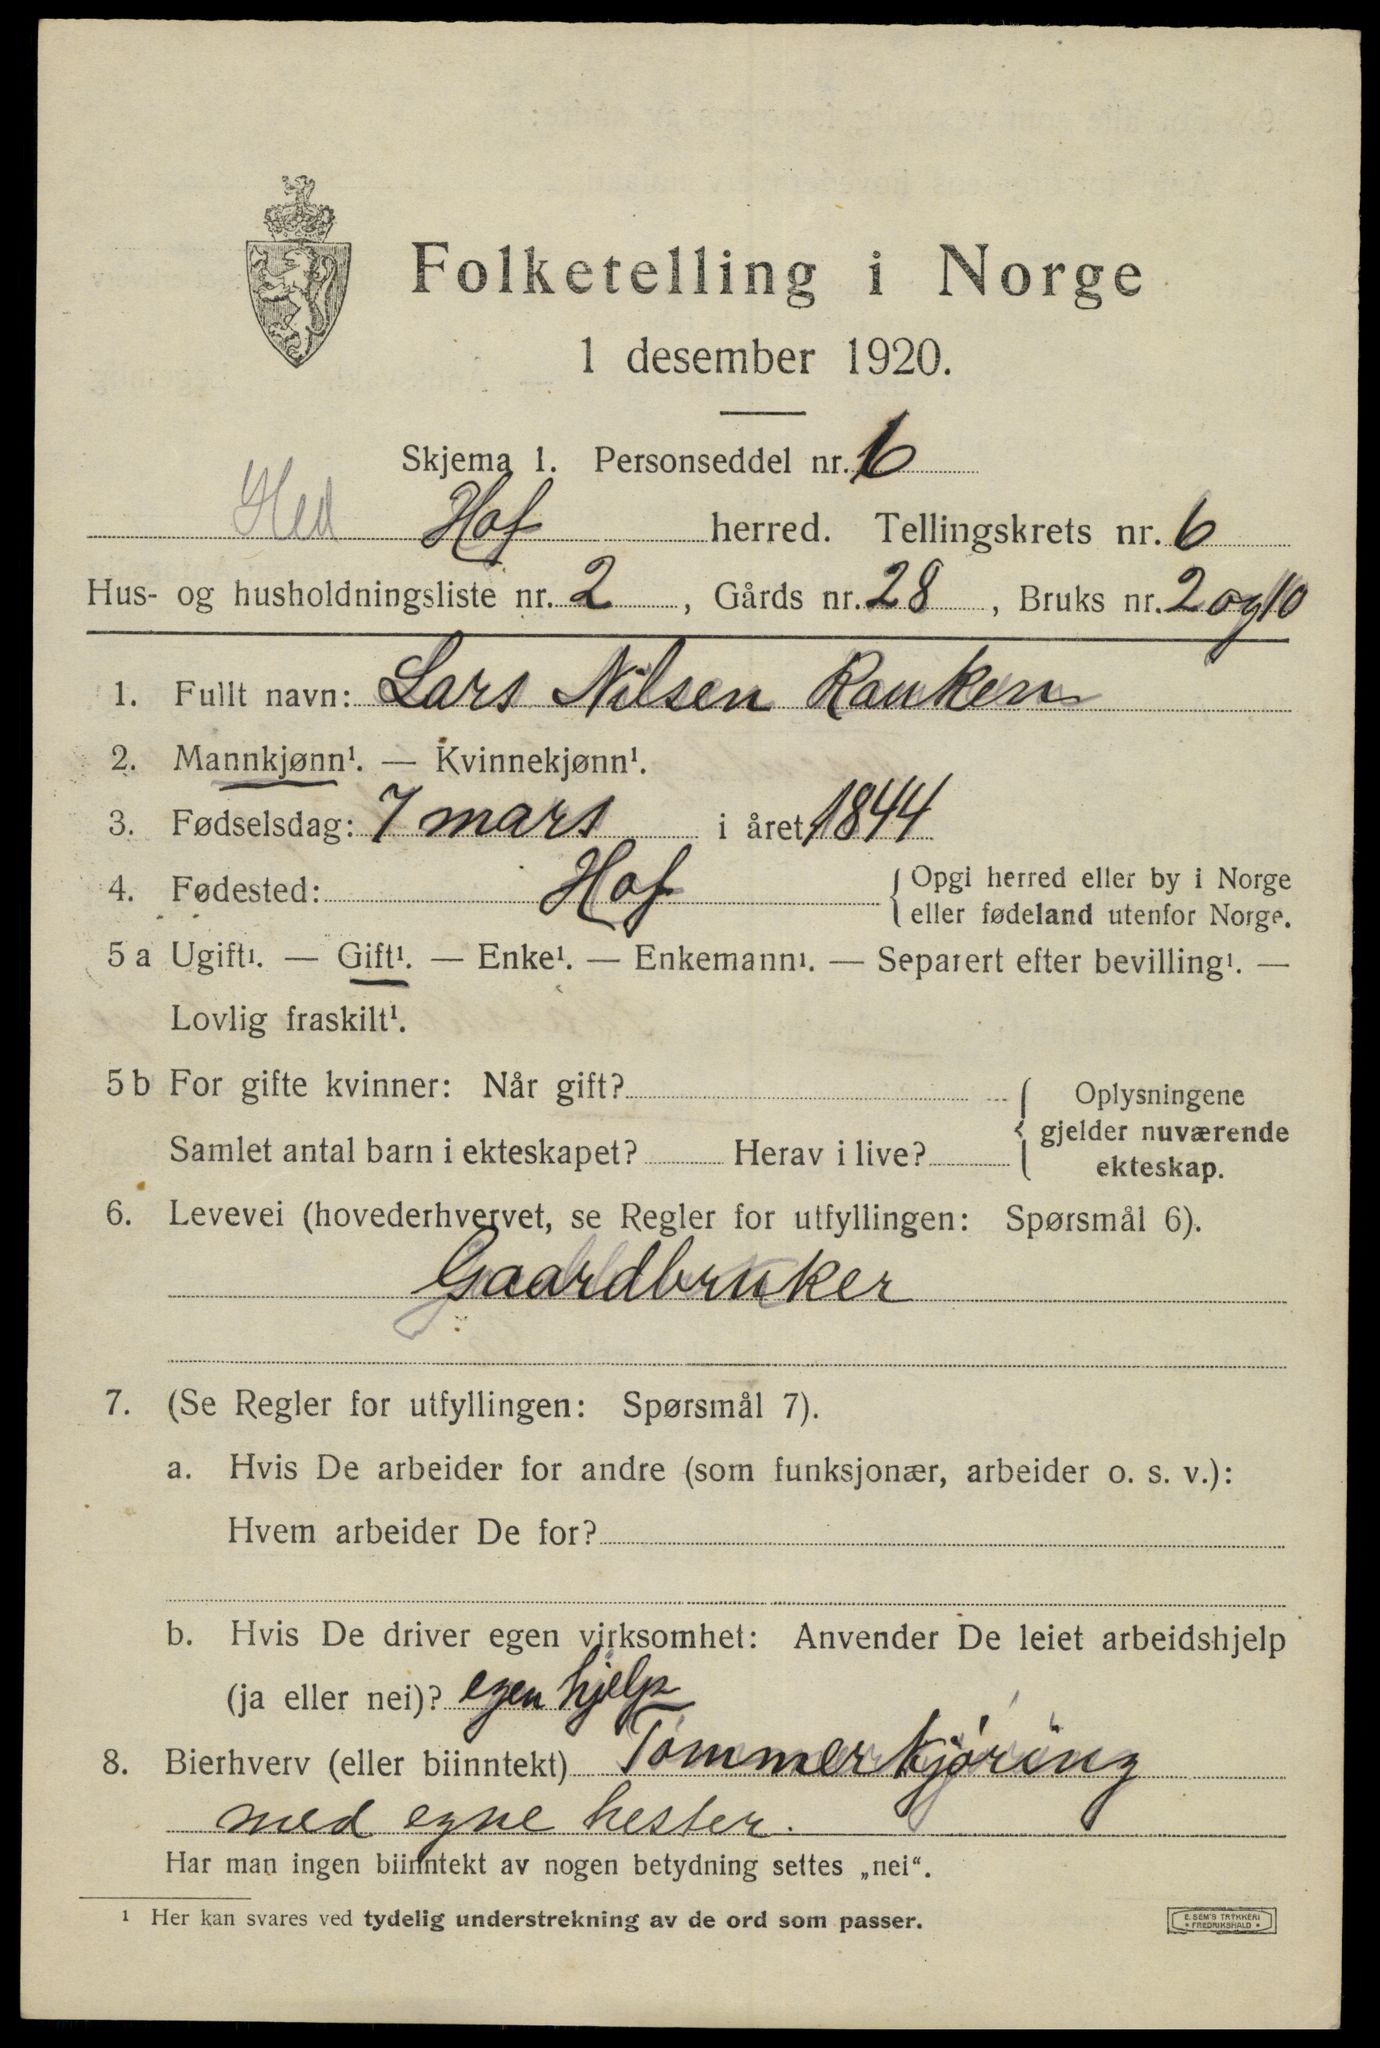 Folketelling i Norge
1 desember 1920.
Skjema 1. Personseddel nr. 6
Hed Hof herred. Tellingskrets nr. 6
Hus- og husholdningsliste nr. 2, Gårds nr. 28, Bruks nr. 2 og 10
1. Fullt navn: Lars Nilsen Rauken
2. Mannkjønn¹. — Kvinnekjønn¹.
3. Fødselsdag: 7 mars i året 1844
4. Fødested: Hof { Opgi herred eller by i Norge
eller fødeland utenfor Norge.
5 a Ugift¹. — Gift¹. — Enke¹. — Enkemann¹. — Separert efter bevilling¹. —
Lovlig fraskilt¹.
5 b For gifte kvinner: Når gift? { Oplysningene
gjelder nuværende
Samlet antal barn i ekteskapet? Herav i live?
ekteskap.
6. Levevei (hovederhvervet, se Regler for utfyllingen: Spørsmål 6).
Gaardbruker
7. (Se Regler for utfyllingen: Spørsmål 7).
a. Hvis De arbeider for andre (som funksjonær, arbeider o. s. v.):
Hvem arbeider De for?
b. Hvis De driver egen virksomhet: Anvender De leiet arbeidshjelp
(ja eller nei)? egen hjelp
8. Bierhverv (eller biinntekt) Tømmerkjøring
med egne hester.
Har man ingen biinntekt av nogen betydning settes „nei“.
¹ Her kan svares ved tydelig understrekning av de ord som passer.
E. SEM'S TRYKKERI
* FREDRIKSHALD *